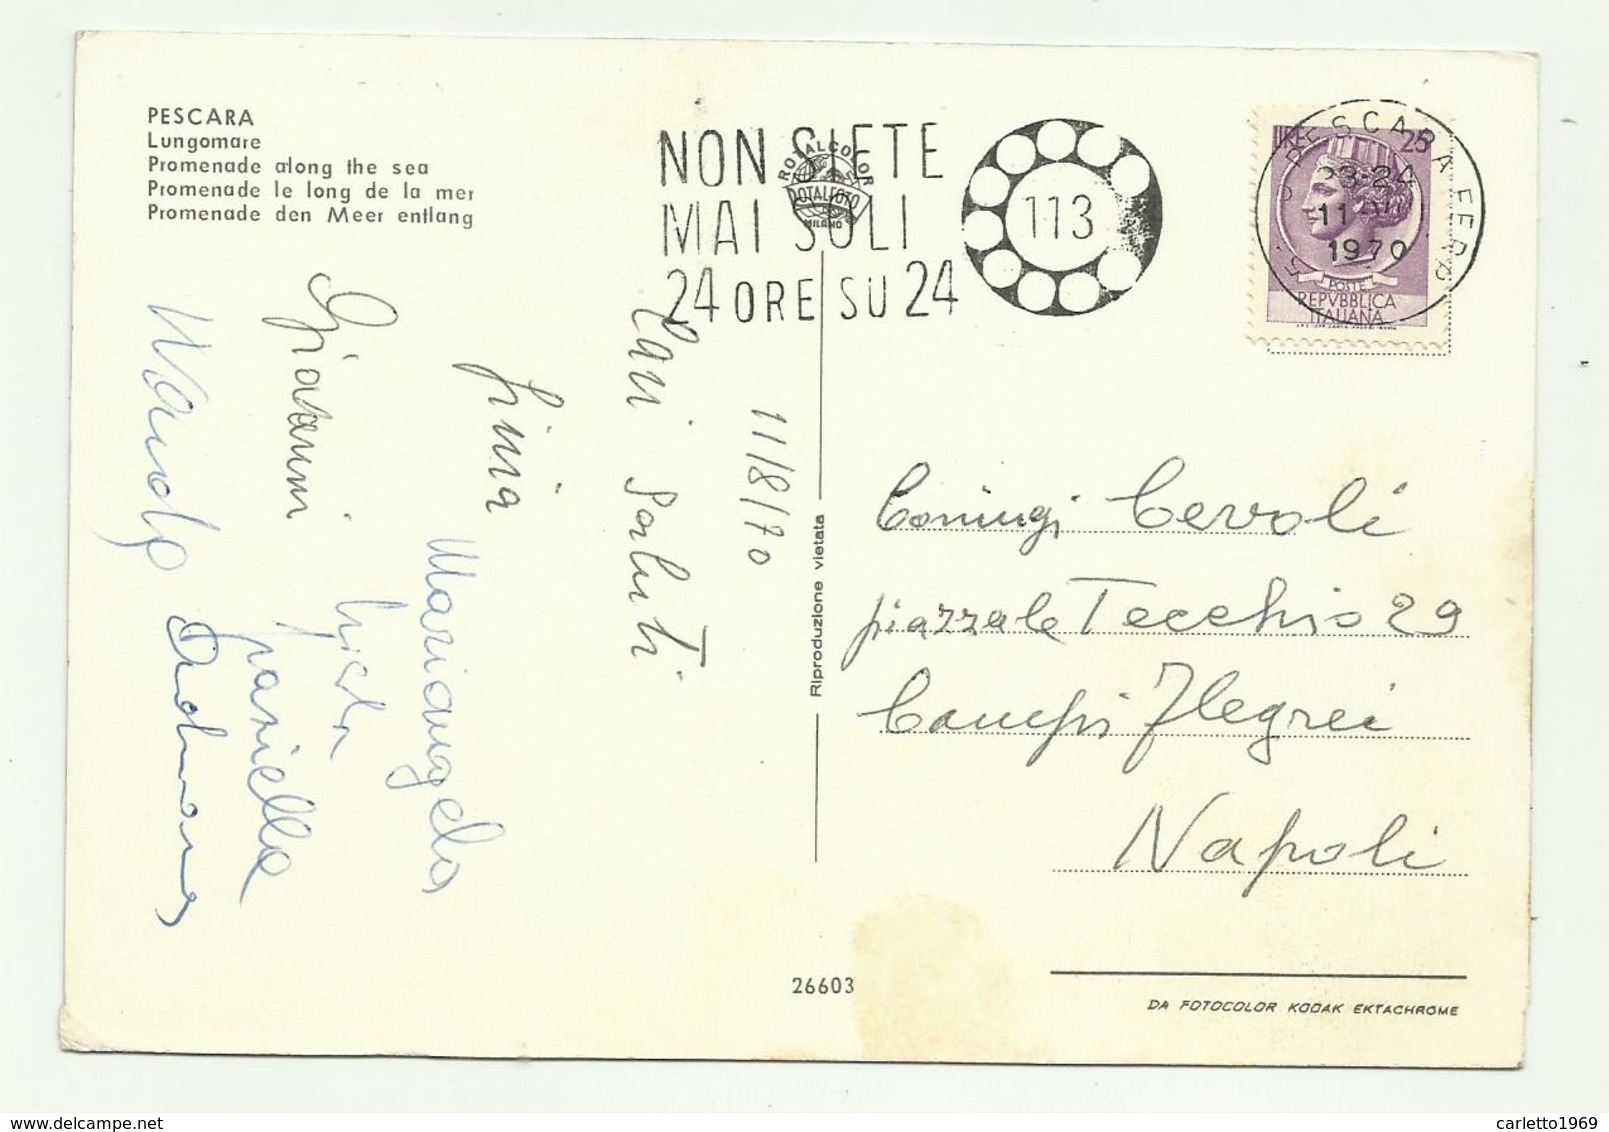 PESCARA
Lungomare
Promenade along the sea
Promenade le long de la mer
Promenade den Meer entlang
NON SIETE
MAI SOLI
24 ORE SU 24
113
ROTALCOLOR
ROTALFOTO
MILANO
LIRE 25
POSTE
REPVBBLICA
ITALIANA
PESCARA FERR
23-24
11
1970
11/8/70
Cari saluti
Lina
Giovanni
Mariangela
Graziella
Coniugi Cevoli
piazzale Tecchio 29
Campi Flegrei
Napoli
Riproduzione vietata
26603
DA FOTOCOLOR KODAK EKTACHROME
carletto1969